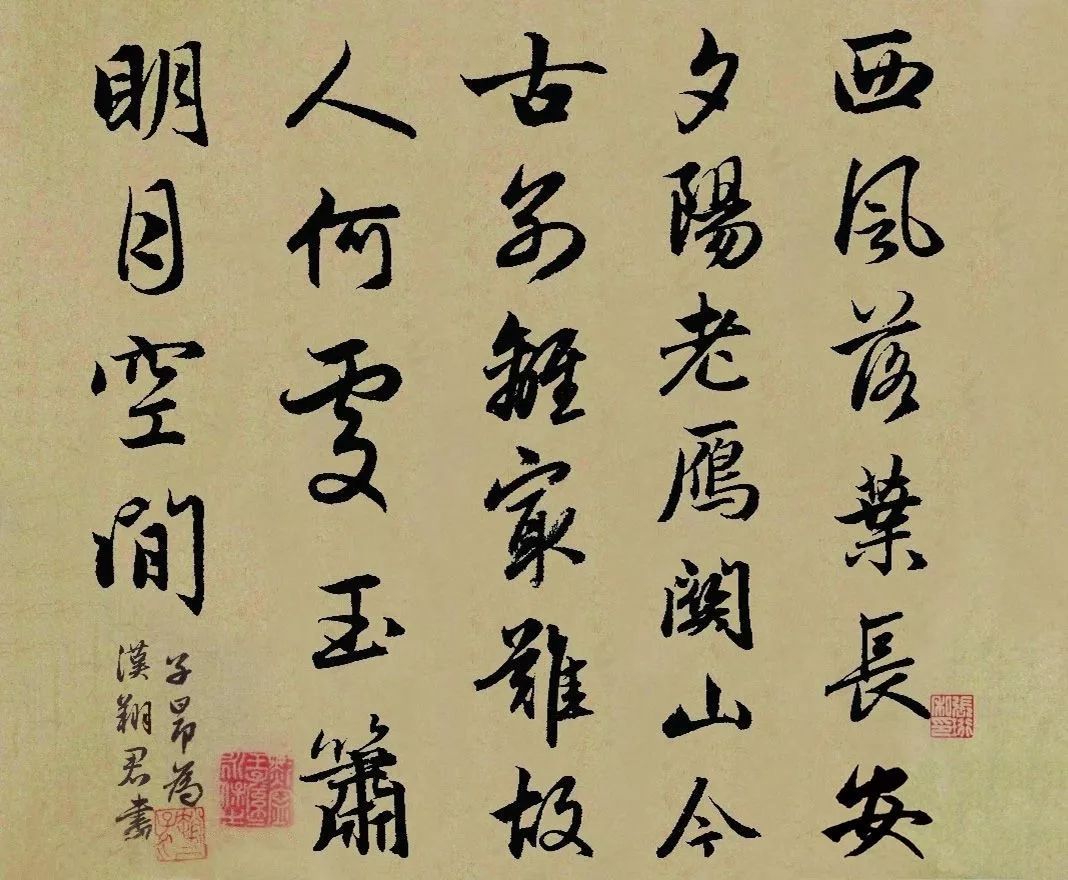 西風落葉長安
夕陽老雁關山今
古別離最難故
人何處玉簫
明月空間
子昂為
漢翔君書